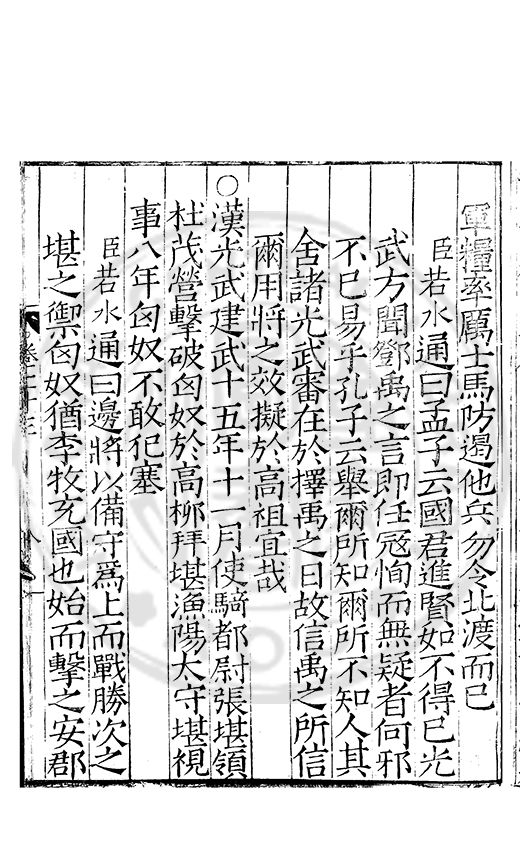 軍糧率厲士馬防遏他兵勿令北渡而已
臣若水通曰孟子云國君進賢如不得已光
武方聞鄧禹之言即任冦恂而無疑者何邪
不已易乎孔子云舉爾所知爾所不知人其
舍諸光武審在於擇禹之日故信禹之所信
爾用將之效擬於高祖宜哉
○漢光武建武十五年十一月使騎都尉張堪領
杜茂營擊破匈奴於高柳拜堪漁陽太守堪視
事八年匈奴不敢犯塞
臣若水通曰邊將以備守爲上而戰勝次之
堪之禦匈奴猶李牧充國也始而擊之安郡